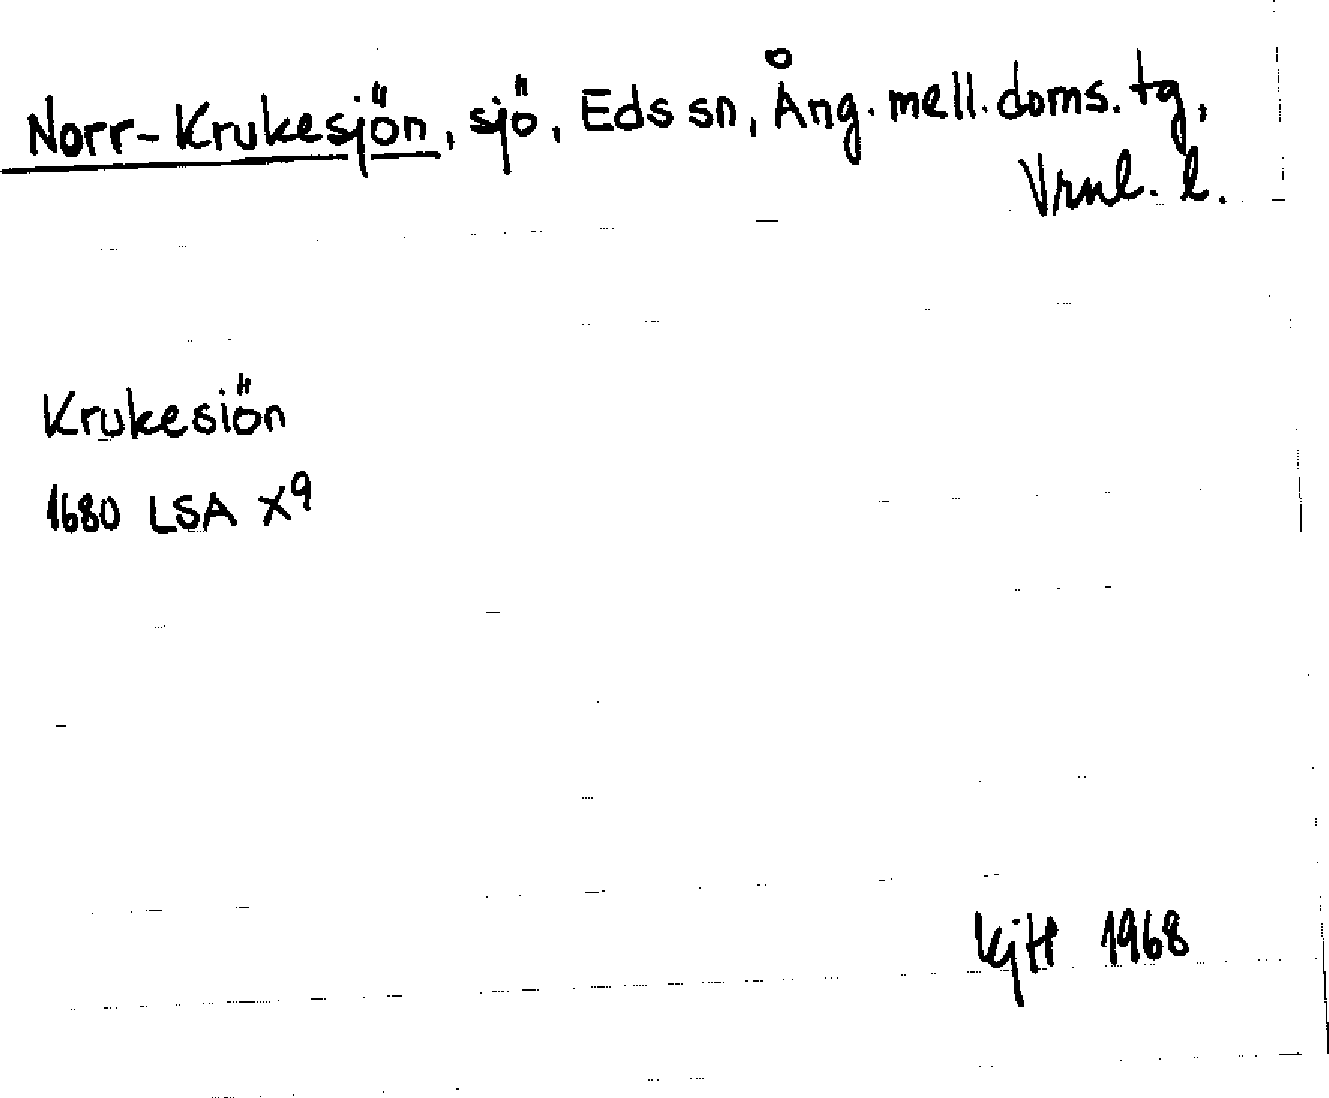 Norr-Krukesjön, sjö, Eds sn, Ång. mell. doms. tg,
Vrml. l.
Krukesiön
1680 LSA X9
KjH 1968